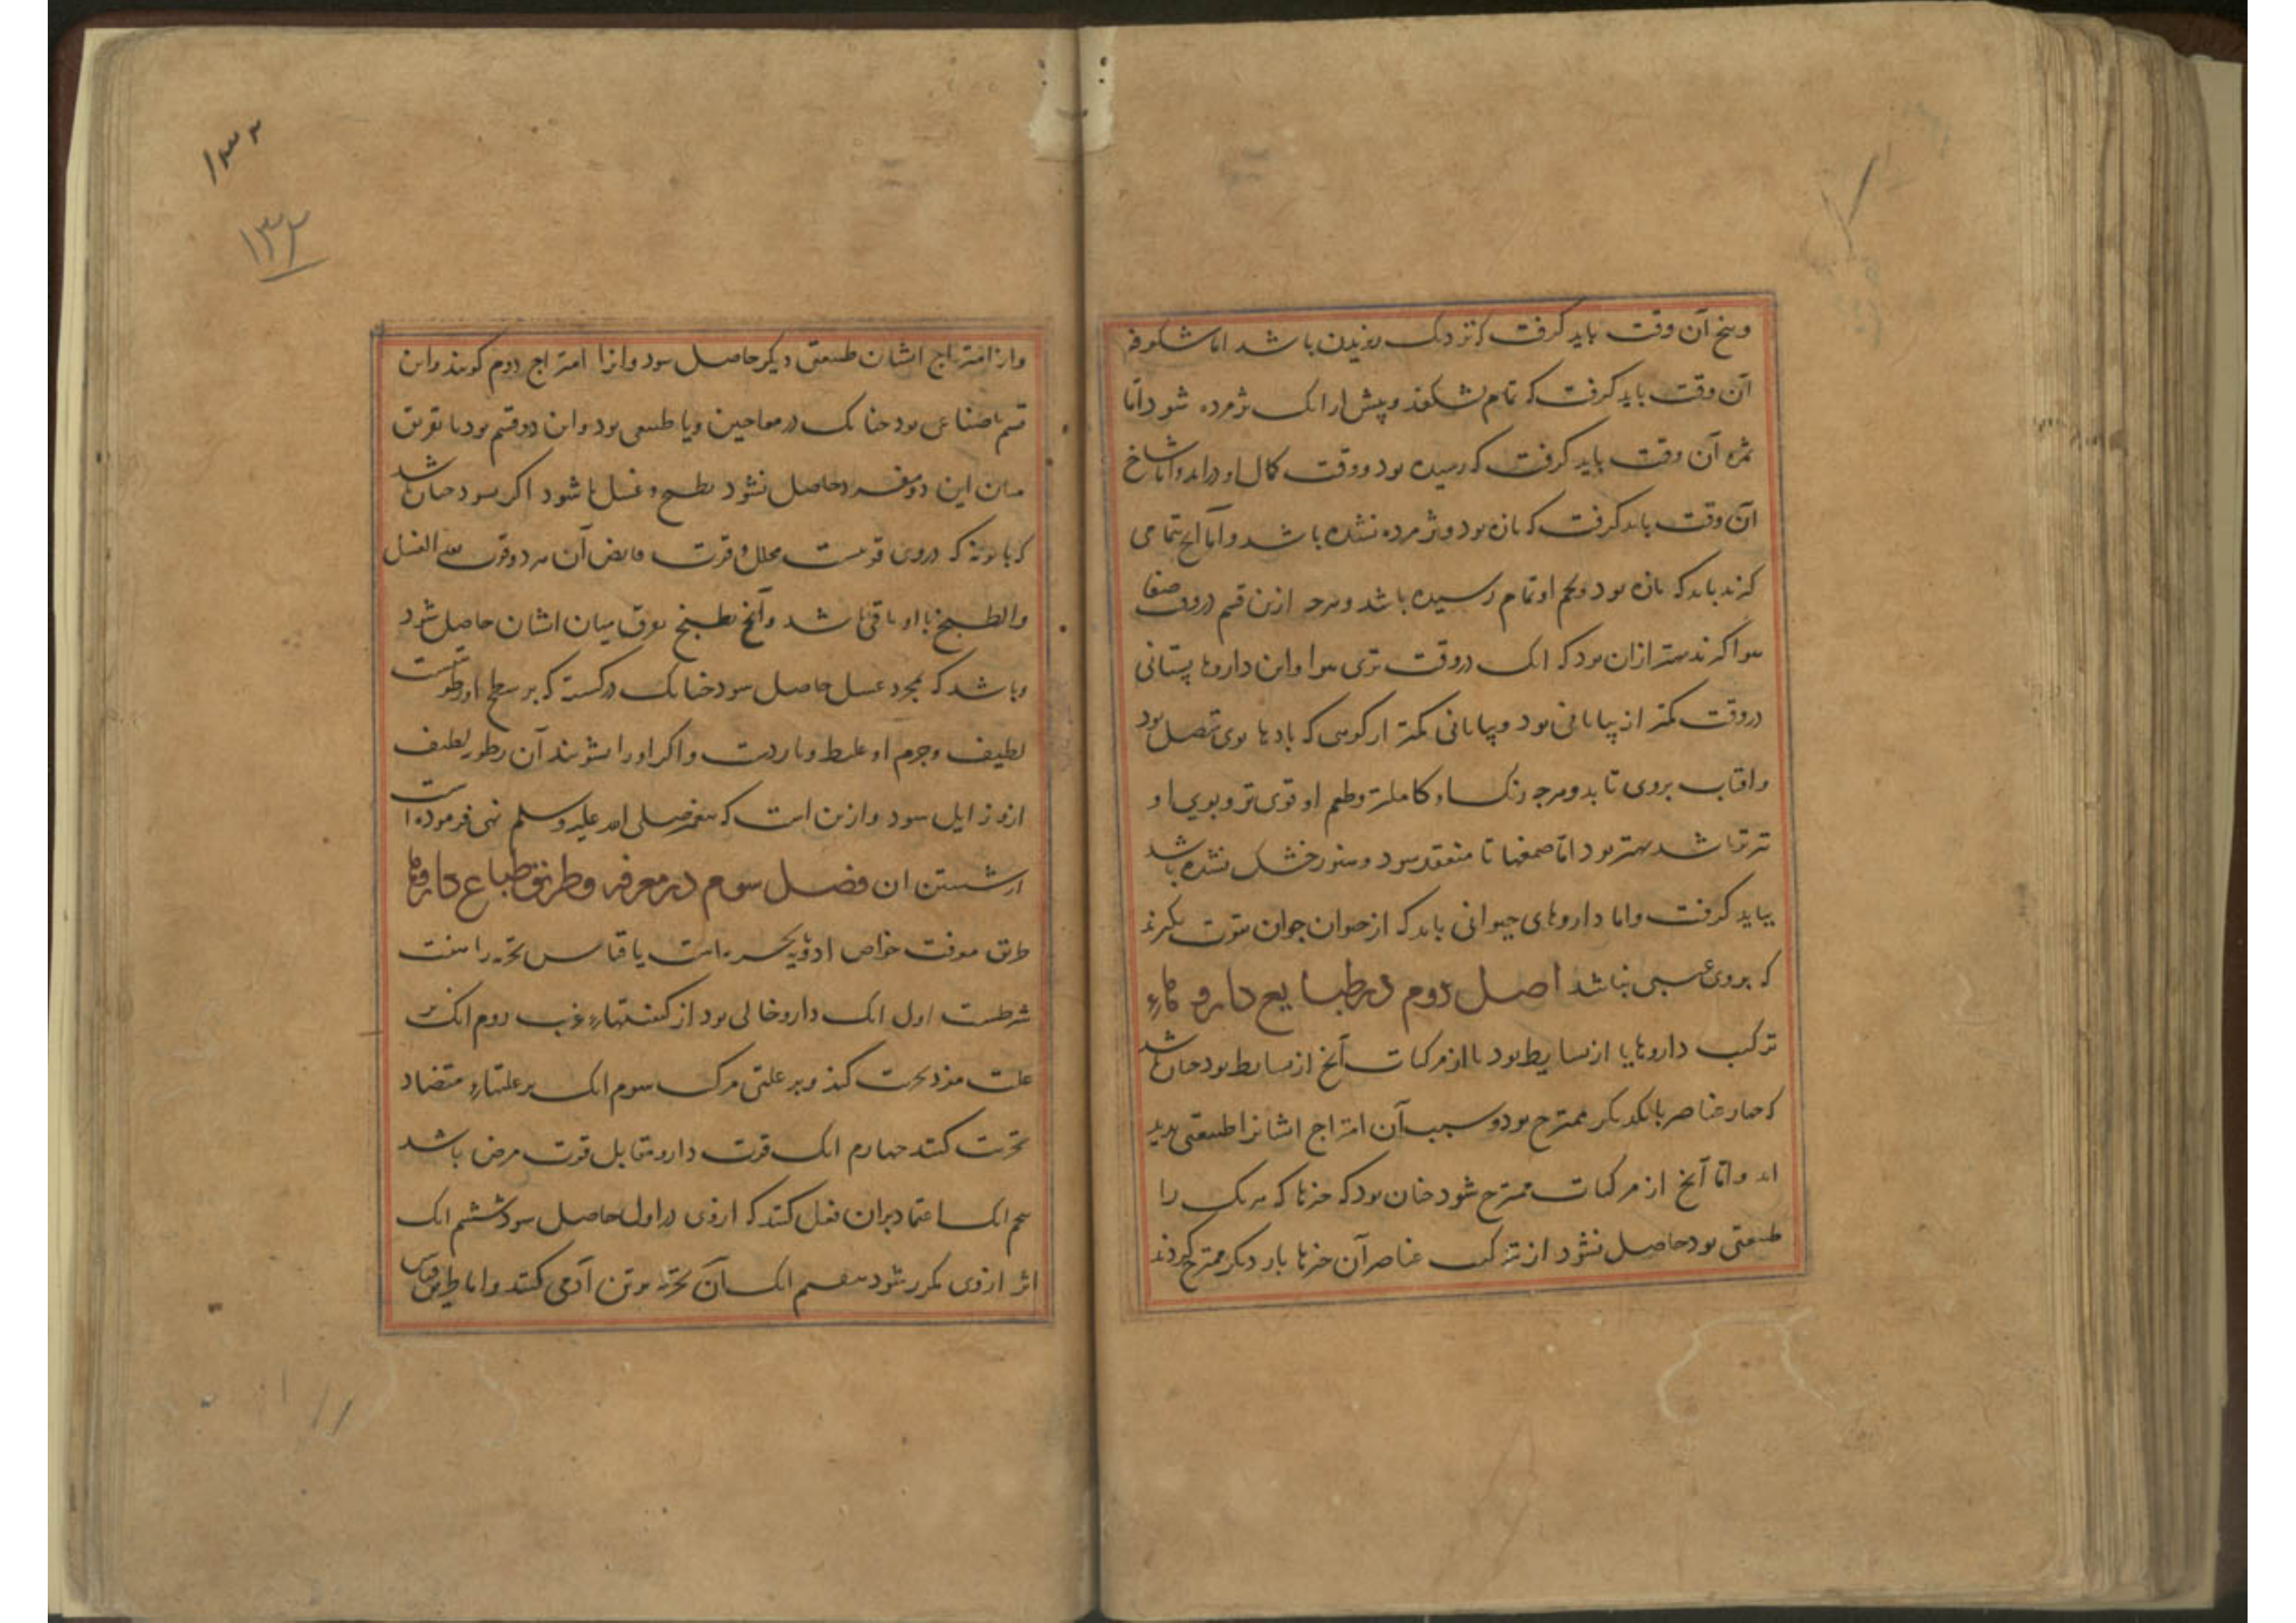 وبیخ آن وقت باید کرفت که نزدیک ریزیدن باشد اما شکوفه
آن وقت باید کرفت که تمام بشکفد وپیش از انک پژمرده شود اما
ثمره آن وقت باید کرفت که رسیده بود ووقت کمال او دراید واما شاخ
آن وقت باید کرفت که تازه بود وپژمرده نشده باشد واما آنچ بتمامی
کرند باید که تازه بود وتخم او تمام رسیده باشد وهرچه ازین قسم در وقت صفا
هوا کرند بهتر ازان بود که انک در وقت تری هوا واین داروها بستانی
در وقت کمتر از بیابانی بود وبیابانی کمتر از کوهی که بادها بوی متصل بود
وافتاب بروی تابد وهرچه رنک او کاملتر وطعم او قوی تر وبوی او
تیزتر باشد بهتر بود اما صمغها تا منعقد سود وهنوز خشک نشده باشد
بباید کرفت واما داروهای حیوانی باید که از حیوان جوان بقوت بکیرند
که بروی عیبی نباشد اصل دوم در طبایع داروهاء
ترکیب داروها یا از بسایط بود یا از مرکبات آنچ از بسایط بود چنان باشد
که چهار عناصر بایکدیکر ممتزج بود وسبب آن امتزاج ایشانرا طبیعتی پدید
اید واما آنچ از مرکبات ممتزج شود چنان بود که چیزها که هریک را
طبیعتی بود حاصل نشود از ترکیب عناصر آن چیزها بار دیکر ممتزج کردند
۱۳۲
۱۳۲
واز امتزاج ایشان طبیعتی دیکر حاصل سود وانرا امتزاج دوم کویند واین
قسم یا صناعی بود چنانک در معاجین ویا طبیعی بود واین دو قسم بود یا تفریق
میان این دو مفرد حاصل نشود بطبخ وغسل یا شود اکر نسود چنان باشد
که بابونه که دروی قوتیست محلل وقوت قابض آن هر دو قوت بعد الغسل
والطبخ با او باقی باشد وآنچ بطبخ تفریق میان ایشان حاصل شود
وباشد که بمجرد غسل حاصل سود چنانک در کسنه که بر سطح او رطوبتیست
لطیف وجرم او غلیط وباردست واکر اورا بشویند آن رطوبت لطیف
ازو زایل سود وازین است که پیغمبر صلی الله علیه وسلم نهی فرموده است
از شستن ان فصل سوم در معرفه وطریق طباع داروها
طریق معرفت خواص ادویه تجربه است یا قیاس تجربه را هفت
شرطست اول انک دارو خالی بود از کیفیتهاء غریب دوم انک بر
علت مفرد تجربت کنند وبر علتی مرکب سوم انک بر علتهاء متضاد
تجربت کنند چهارم انک قوت دارو مقابل قوت مرض باشد
پنجم انک اعتماد بران فعل کنند که ازوی در اول حاصل سود ششم انک
اثر ازوی مکرر شود هفتم انک آن تجربه بر تن آدمی کنند واما طریق قیاس